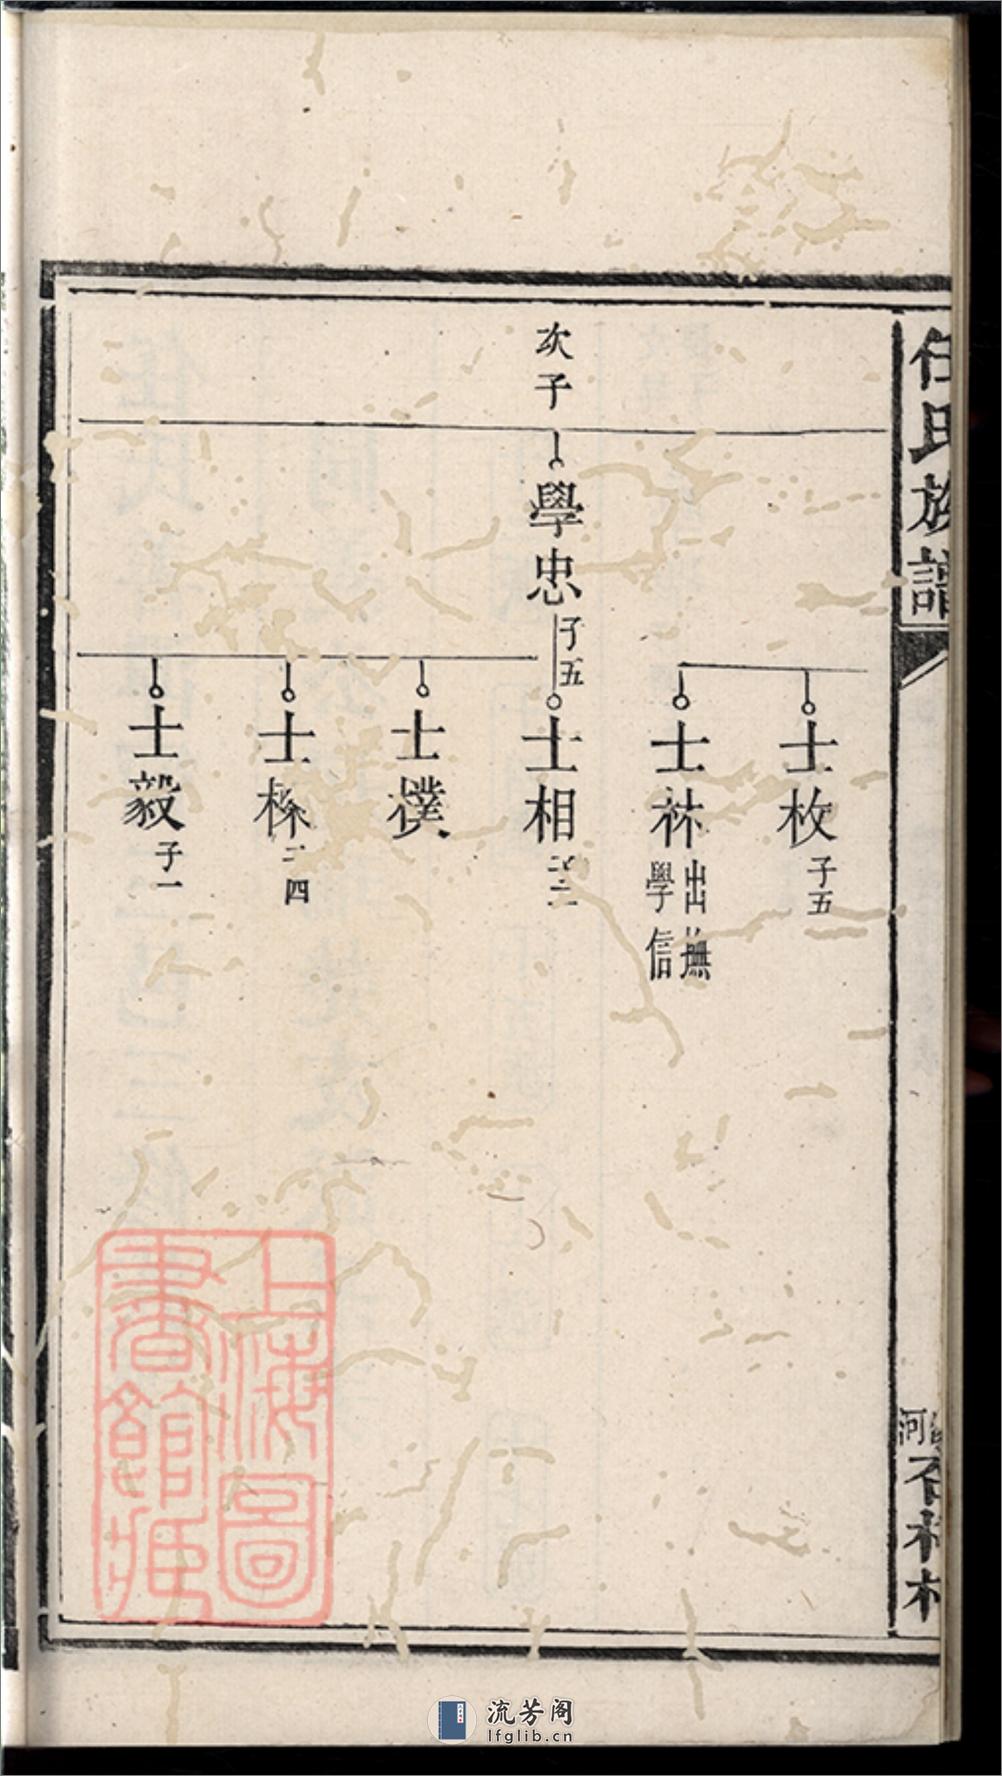 任氏族譜
河
石村
士枚 子五
士袾 出撫學信
次子
學忠 子五
士相 子二
士樸
士 子四
士毅 子一
上海圖書館藏
流芳阁
lfglib.cn